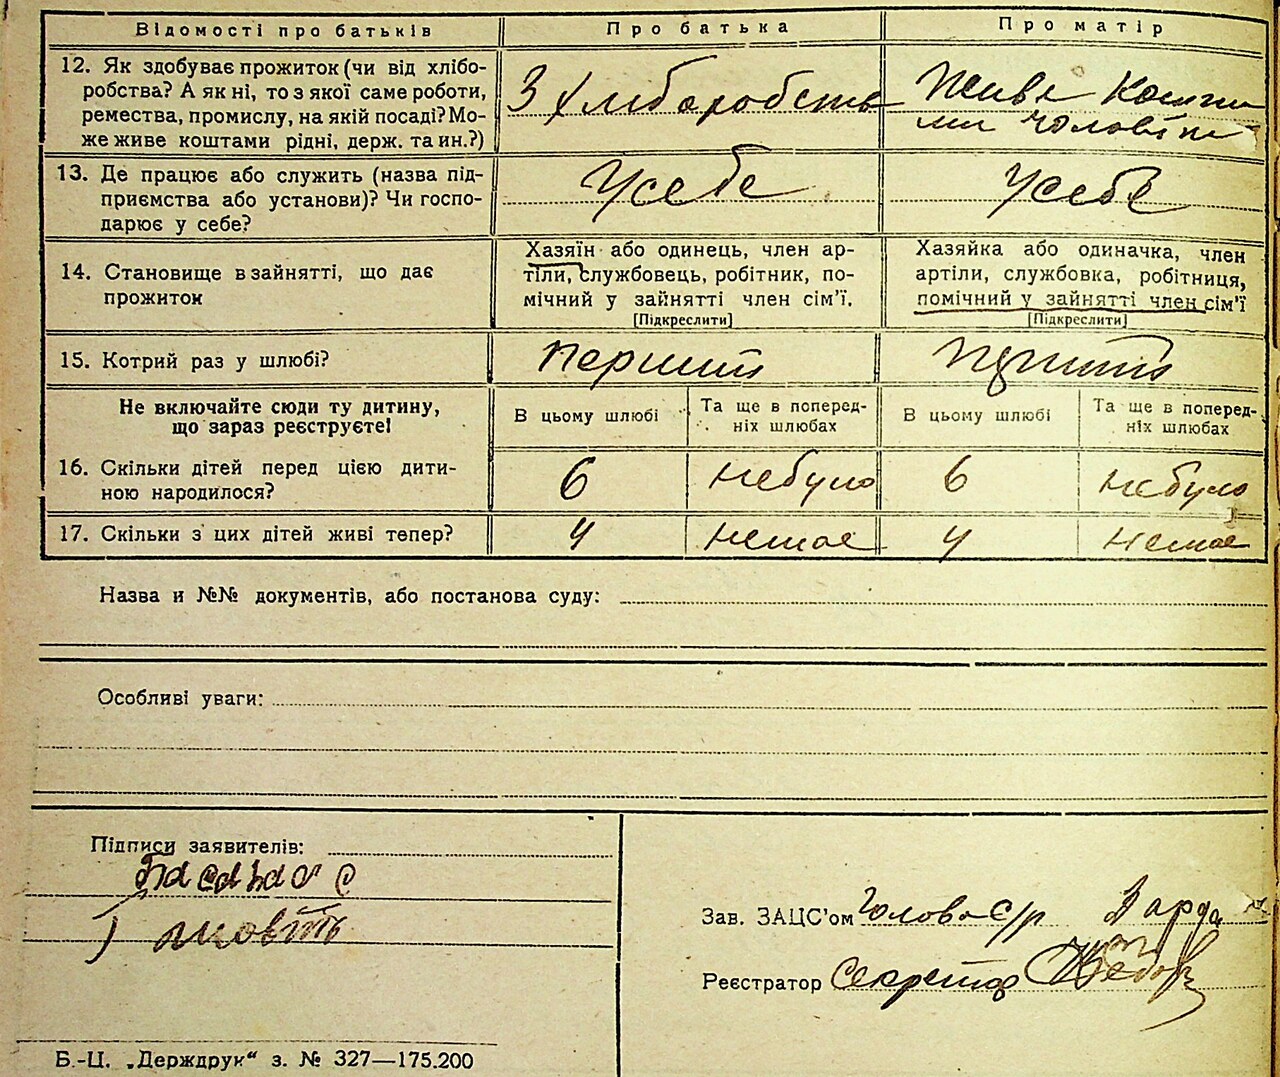 Відомості про батьків
Про батька
Про матір
12. Як здобуває прожиток (чи від хлібо-
робства? А як ні, то з якої саме роботи,
ремества, промислу, на якій посаді? Мо-
же живе коштами рідні, держ. та ин.?)
З хліборобства
Живе Кошта
ми чоловіка
13. Де працює або служить (назва під-
приємства або установи)? Чи госпо-
дарює у себе?
Усебе
Усебе
14. Становище в зайнятті, що дає
прожиток
Хазяїн або одинець, член ар-
тіли, службовець, робітник, по-
мічний у зайнятті член сім'ї.
[Підкреслити]
Хазяйка або одиначка, член
артіли, службовка, робітниця,
помічний у зайнятті член сім'ї
[Підкреслити]
15. Котрий раз у шлюбі?
Перший
Не включайте сюди ту дитину,
що зараз реєструєте!
В цьому шлюбі
Та ще в поперед-
ніх шлюбах
В цьому шлюбі
Та ще в поперед-
ніх шлюбах
16. Скільки дітей перед цією дити-
ною народилося?
6
небуло
6
небуло
17. Скільки з цих дітей живі тепер?
4
немає
4
немає
Назва и №№ документів, або постанова суду:
Особливі уваги:
Підписи заявителів:
Зав. ЗАЦС'ом Голова с/р
Реєстратор Секретар
Б.-Ц. „Держдрук“ з. № 327—175.200